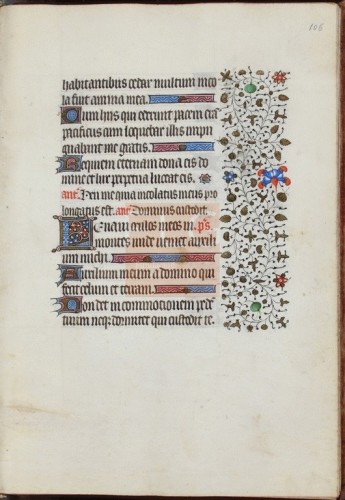 habitantibus cedar multum inco
la fuit anima mea.
Cum hiis qui oderunt pacem era
pacificus cum loquebar illis impu
gnabant me gratis.
Requiem eternam dona eis do
mine et lux perpetua luceat eis.
ant. Heu me quia incolatus meus pro
longatus est. ant. Dominus custodit.
Leuaui oculos meos in ps.
montes unde ueniet auxili
um michi.
Auxilium meum a domino qui
fecit celum et terram.
Non det in commotionem pede
tuum neq; dormitet qui custodit te.